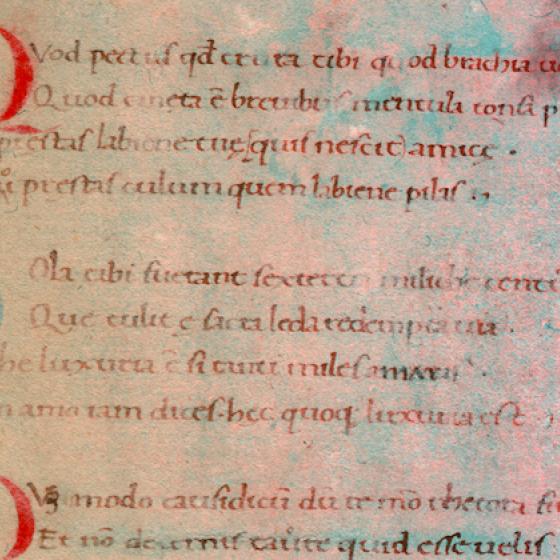 QVod pectus qđ crura tibi quod brachia
Quod cincta ē breuibus mentula tonsa p
prestas labiene tuę (quis nescit) amicę .
prestas culum quem labiene pilas .,
Ola tibi fuerant sextertia miliche cent
Que tulit e sacra leda redempta uia .
he luxuria ē si tanti miles amares .
n amo iam dices. hec quoq luxuria est
Vꝫ modo causidicū du te mō rhetora fi
Et nō decernis taure quid esse uelis